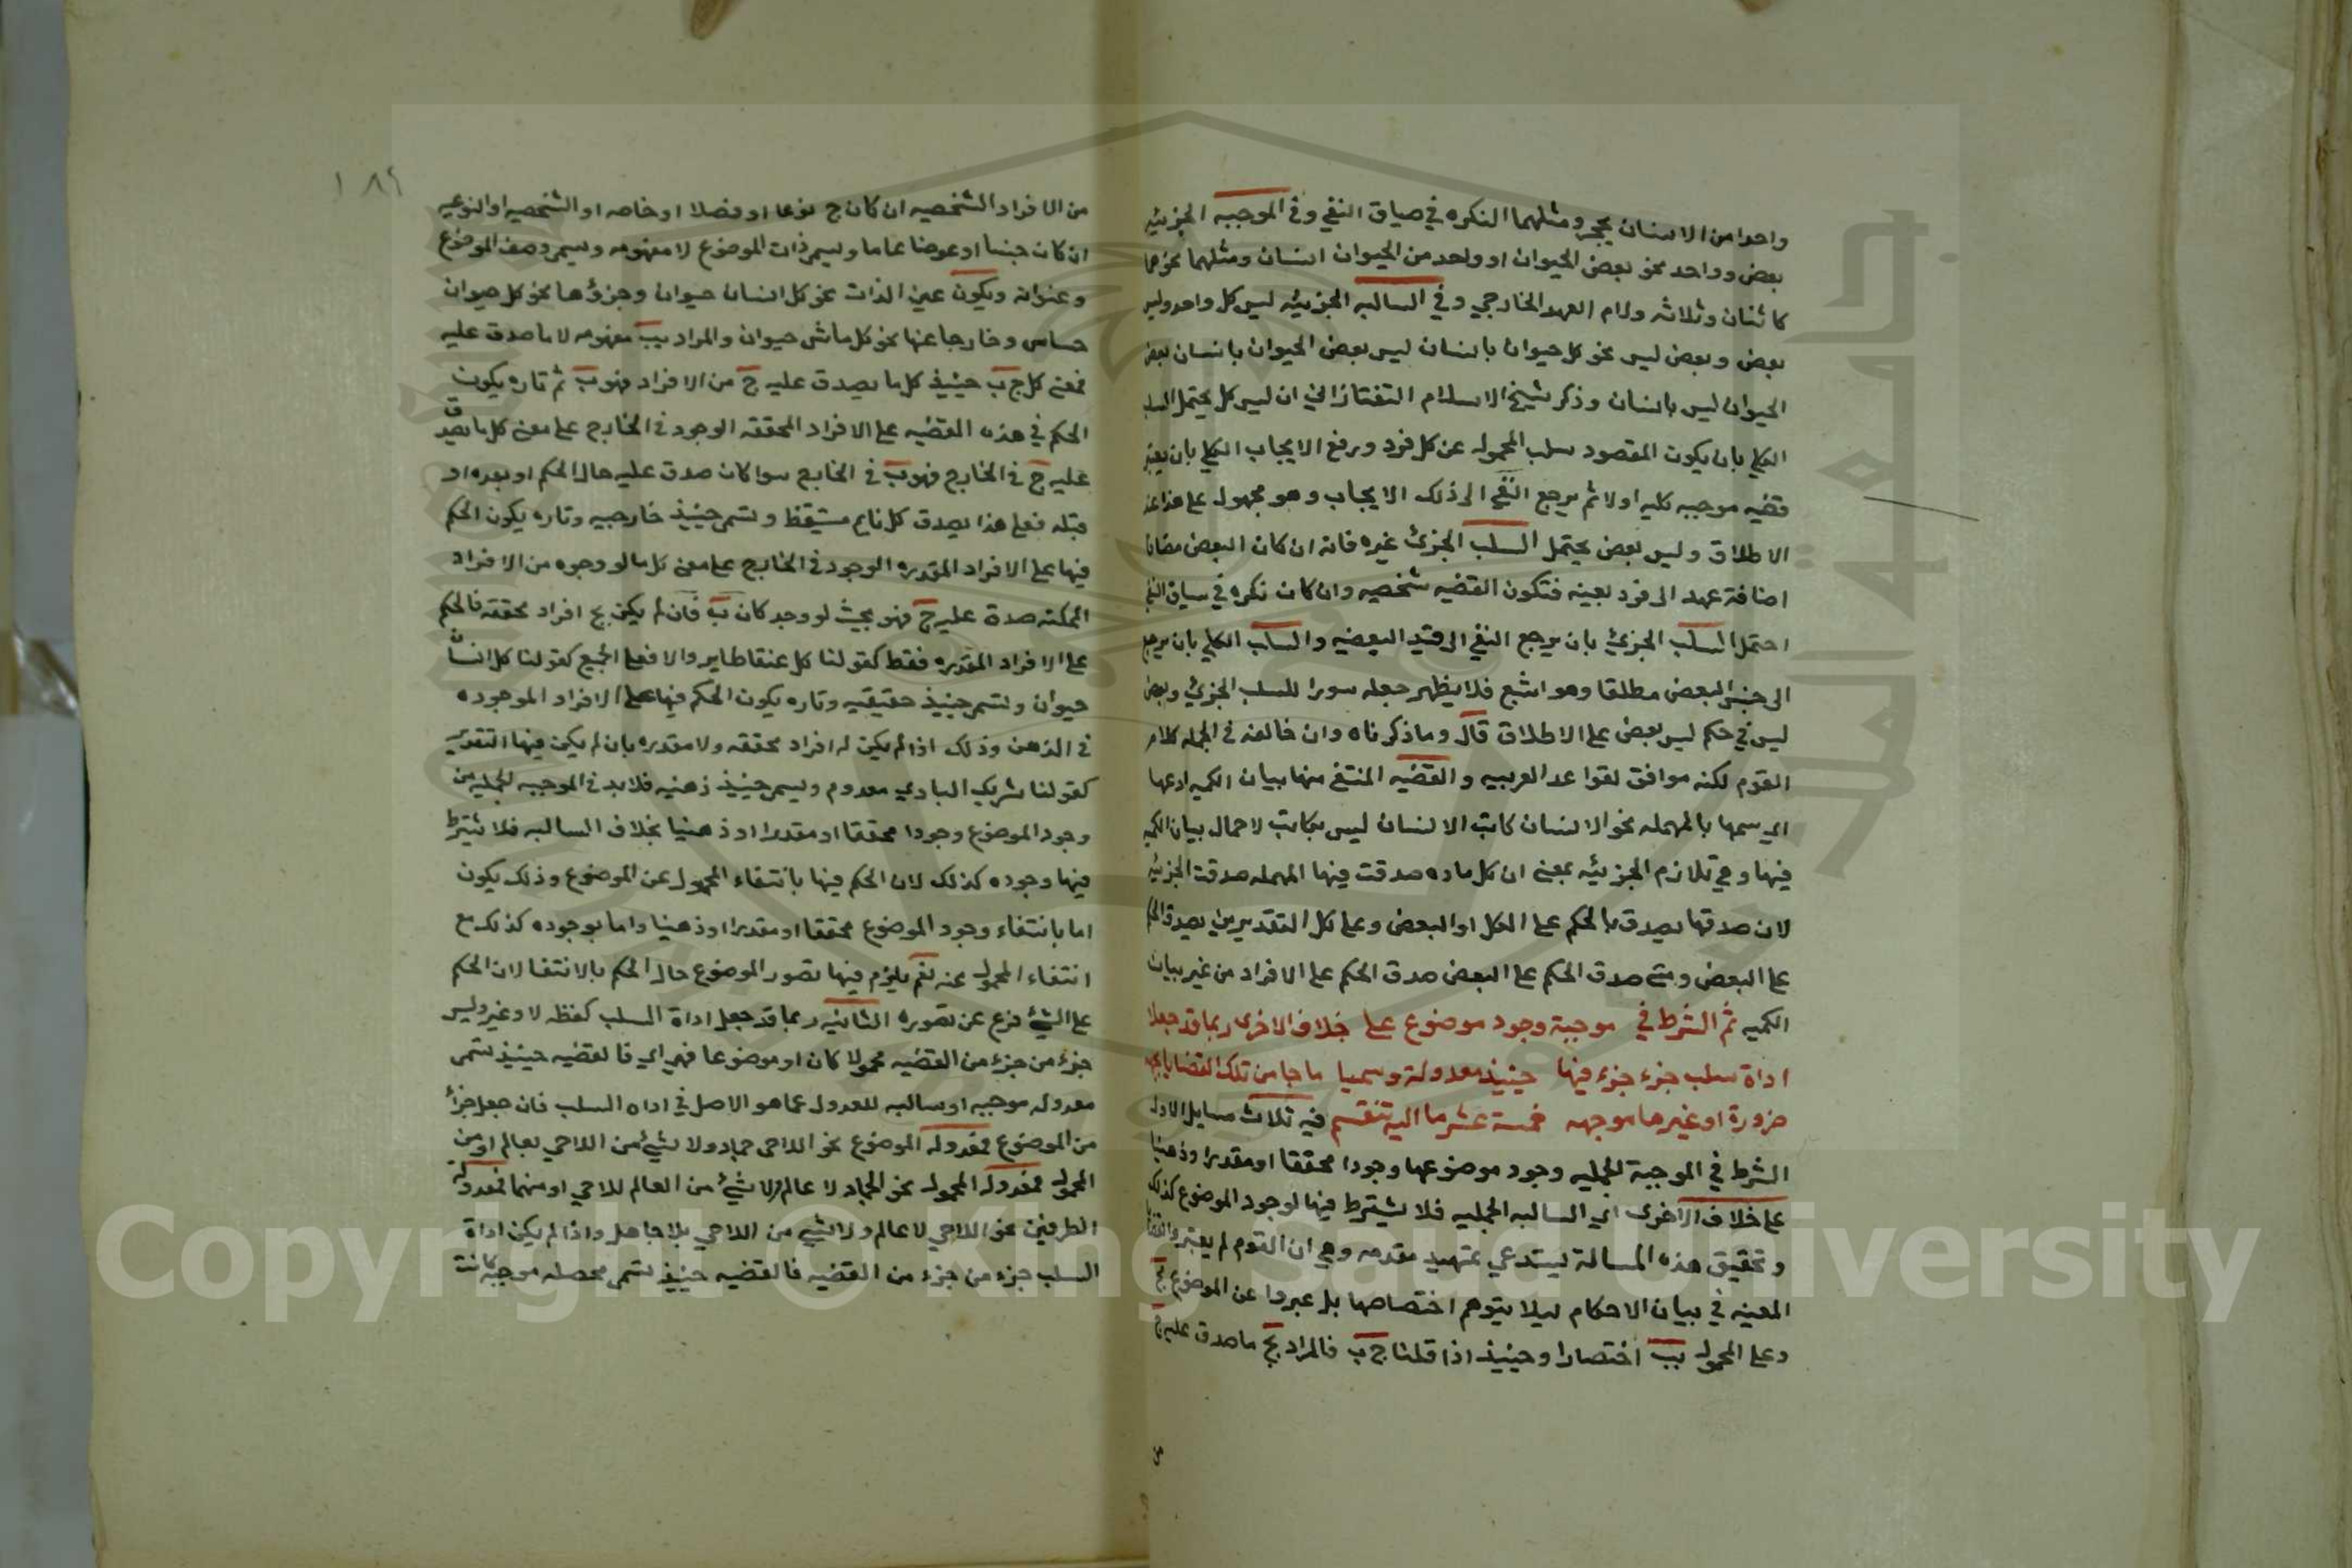 واحدا من الانسان بحجر ومثلهما النكره في صياق النفي وفي الموجبه الجزئيه
بعض وواحد نحو بعض الحيوان او واحد من الحيوان انسان ومثلهما نحوهما
كاثنان وثلاثه ولام العهد الخارجي وفي السالبه الجزئيه ليس كل واحد وليس
بعض وبعض ليس نحو كل حيوان بانسان ليس بعض الحيوان بانسان بعض
الحيوان ليس بانسان وذكر شيخ الاسلام التفتازاني ان ليس كل يحتمل السلب
الكلي بان يكون المقصود سلب المحمول عن كل فرد ورفع الايجاب الكلي بان يعتبر
قضيه موجبه كليه اولا ثم يرجع النفي الى ذلك الايجاب وهو مجهول على هذا عند
الاطلاق وليس بعض يحتمل السلب الجزئ غيره فانه ان كان البعض مضافا
اضافة عهد الى فرد بعينه فتكون القضيه شخصيه وان كان نكره في سياق النفي
احتمل السلب الجزئي بان يرجع النفي الى قيد البعضيه والسلب الكلي بان يرجع
الى جنس البعض مطلقا وهو اشبع فلا يظهر جعله سورا للسلب الجزئي وبعض
ليس في حكم ليس بعض على الاطلاق قال وما ذكرناه وان خالفه في الجمله كلام
القوم لكنه موافق لقواعد العربيه والقضيه المنتفي منها بيان الكميه ادعها
اي سمها بالمهمله نحو الانسان كاتب الانسان ليس بكاتب لاهمال بيان الكميه
فيها وهي تلازم الجزئيه بمعنى ان كل ماده صدقت فيها المهمله صدقت الجزئيه
لان صدقها يصدق بالحكم على الكل او البعض وعلى كل التقديرين يصدق الحكم
على البعض ومتى صدق الحكم على البعض صدق الحكم على الافراد من غير بيان
الكميه ثم الشرط في موجبة وجود موضوع على خلاف الاخرى ربما قد جعلا
اداة سلب جزء جزء فيها حينيذ معدولة وسميا ما جا من تلك القضايا بجهه
ضرورة او غيرها موجهه خمسة عشر ما اليه تنقسم فيه ثلاث مسايل الاولى
الشرط في الموجبة الحمليه وجود موضوعها وجودا محققا او مقدرا او ذهنيا
على خلاف الاخرى اي السالبه الحمليه فلا يشترط فيها لوجود الموضوع كذلك
وتحقيق هذه المسالة يستدعي تمهيد مقدمه وهي ان القوم لم يعتبروا القضايا
المعينه في بيان الاحكام ليلا يتوهم اختصاصها بل عبروا عن الموضوع بج
وعلى المحمول بب اختصارا وحينيذ اذا قلنا ج ب فالمراد بج ما صدق عليه ج
من
١٨٩
من الافراد الشخصيه ان كان ج نوعا او فصلا او خاصه او الشخصيه او النوعيه
ان كان جنسا او عرضا عاما ويسمى ذات الموضوع لا مفهومه ويسمى وصف الموضوع
وعنوانه ويكون عين الذات نحو كل انسان حيوان وجزؤها نحو كل حيوان
حساس وخارجا عنها نحو كل ماش حيوان والمراد بب مفهومه لا ما صدق عليه
فمعنى كل ج ب حينيذ كل ما يصدق عليه ج من الافراد فهو ب ثم تاره يكون
الحكم في هذه القضيه على الافراد المحققه الوجود في الخارج على معنى كل ما يصدق
عليه ج في الخارج فهو ب في الخارج سوا كان صدق عليه حال الحكم او بعده او
قبله فعلى هذا يصدق كل نايم مستيقظ وتسمى حينيذ خارجيه وتاره يكون الحكم
فيها على الافراد المقدره الوجود في الخارج على معنى كل ما لو وجوه من الافراد
الممكنه صدق عليه ج فهو بحيث لو وجد كان ب فان لم يكن بج افراد محققه فالحكم
على الافراد المقدره فقط كقولنا كل عنقا طاير والا فعلى الجميع كقولنا كل انسان
حيوان وتسمى حينيذ حقيقيه وتاره يكون الحكم فيها على الافراد الموجوده
في الذهن وذلك اذا لم يكن له افراد محققه ولا مقدره بان لم يكن فيها التقدير
كقولنا شريك الباري معدوم ويسمى حينيذ ذهنيه فلا بد في الموجبه الحمليه من
وجود الموضوع وجودا محققا او مقدرا او ذهنيا بخلاف السالبه فلا يشترط
فيها وجوده كذلك لان الحكم فيها بانتفاء المحمول عن الموضوع وذلك يكون
اما بانتفاء وجود الموضوع محققا او مقدرا او ذهنيا واما بوجوده كذلك مع
انتفاء المحمول عنه نعم يلزم فيها تصور الموضوع حال الحكم بالانتفا لان الحكم
على الشيء فرع عن تصوره الثانيه ربما قد جعل اداة السلب كلفظه لا وغير وليس
جزء من جزء من القضيه محمولا كان او موضوعا فهي اي فالقضيه حينيذ تسمى
معدوله موجبه او سالبه للعدول عما هو الاصل في اداه السلب فان جعل جزأ
من الموضوع فمعدوله الموضوع نحو اللاحي جماد ولا شيء من اللاحي بعالم او من
المحمول فمعدوله المحمول نحو الجماد لا عالم ولا شيء من العالم للاحي او منهما فمعدولة
الطرفين نحو اللاحي لا عالم ولا شيء من اللاحي بلا جاهل واذا لم يكن اداة
السلب جزء من جزء من القضيه فالقضيه حينيذ تسمى محصله موجبه كانت
Copyright © King Saud University